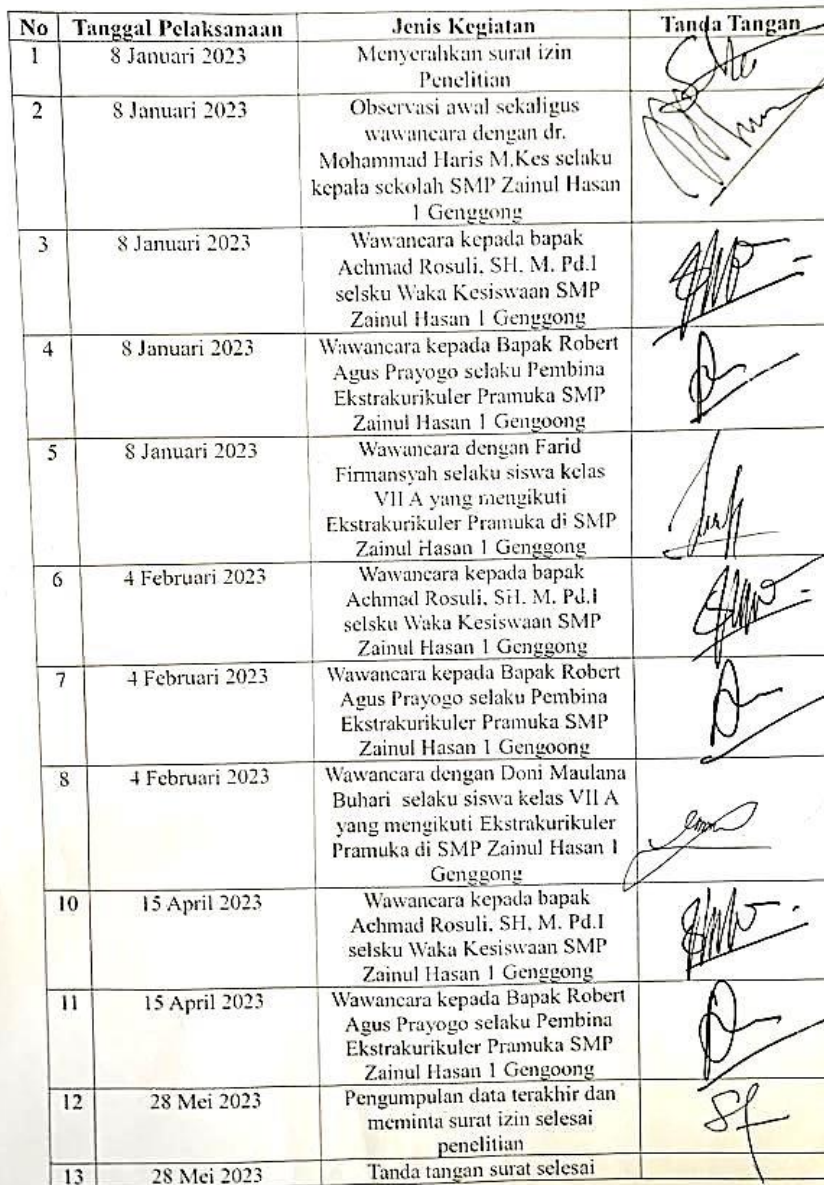 No Tanggal Pelaksanaan Jenis Kegiatan Tanda Tangan
1 8 Januari 2023 Menyerahkan surat izin
Penelitian
2 8 Januari 2023 Observasi awal sekaligus
wawancara dengan dr.
Mohammad Haris M.Kes selaku
kepala sekolah SMP Zainul Hasan
1 Genggong
3 8 Januari 2023 Wawancara kepada bapak
Achmad Rosuli, SH. M. Pd.I
selsku Waka Kesiswaan SMP
Zainul Hasan 1 Genggong
4 8 Januari 2023 Wawancara kepada Bapak Robert
Agus Prayogo selaku Pembina
Ekstrakurikuler Pramuka SMP
Zainul Hasan 1 Gengoong
5 8 Januari 2023 Wawancara dengan Farid
Firmansyah selaku siswa kelas
VII A yang mengikuti
Ekstrakurikuler Pramuka di SMP
Zainul Hasan 1 Genggong
6 4 Februari 2023 Wawancara kepada bapak
Achmad Rosuli, SH. M. Pd.I
selsku Waka Kesiswaan SMP
Zainul Hasan 1 Genggong
7 4 Februari 2023 Wawancara kepada Bapak Robert
Agus Prayogo selaku Pembina
Ekstrakurikuler Pramuka SMP
Zainul Hasan 1 Gengoong
8 4 Februari 2023 Wawancara dengan Doni Maulana
Buhari selaku siswa kelas VII A
yang mengikuti Ekstrakurikuler
Pramuka di SMP Zainul Hasan 1
Genggong
10 15 April 2023 Wawancara kepada bapak
Achmad Rosuli, SH, M. Pd.I
selsku Waka Kesiswaan SMP
Zainul Hasan 1 Genggong
11 15 April 2023 Wawancara kepada Bapak Robert
Agus Prayogo selaku Pembina
Ekstrakurikuler Pramuka SMP
Zainul Hasan 1 Gengoong
12 28 Mei 2023 Pengumpulan data terakhir dan
meminta surat izin selesai
penelitian
13 28 Mei 2023 Tanda tangan surat selesai